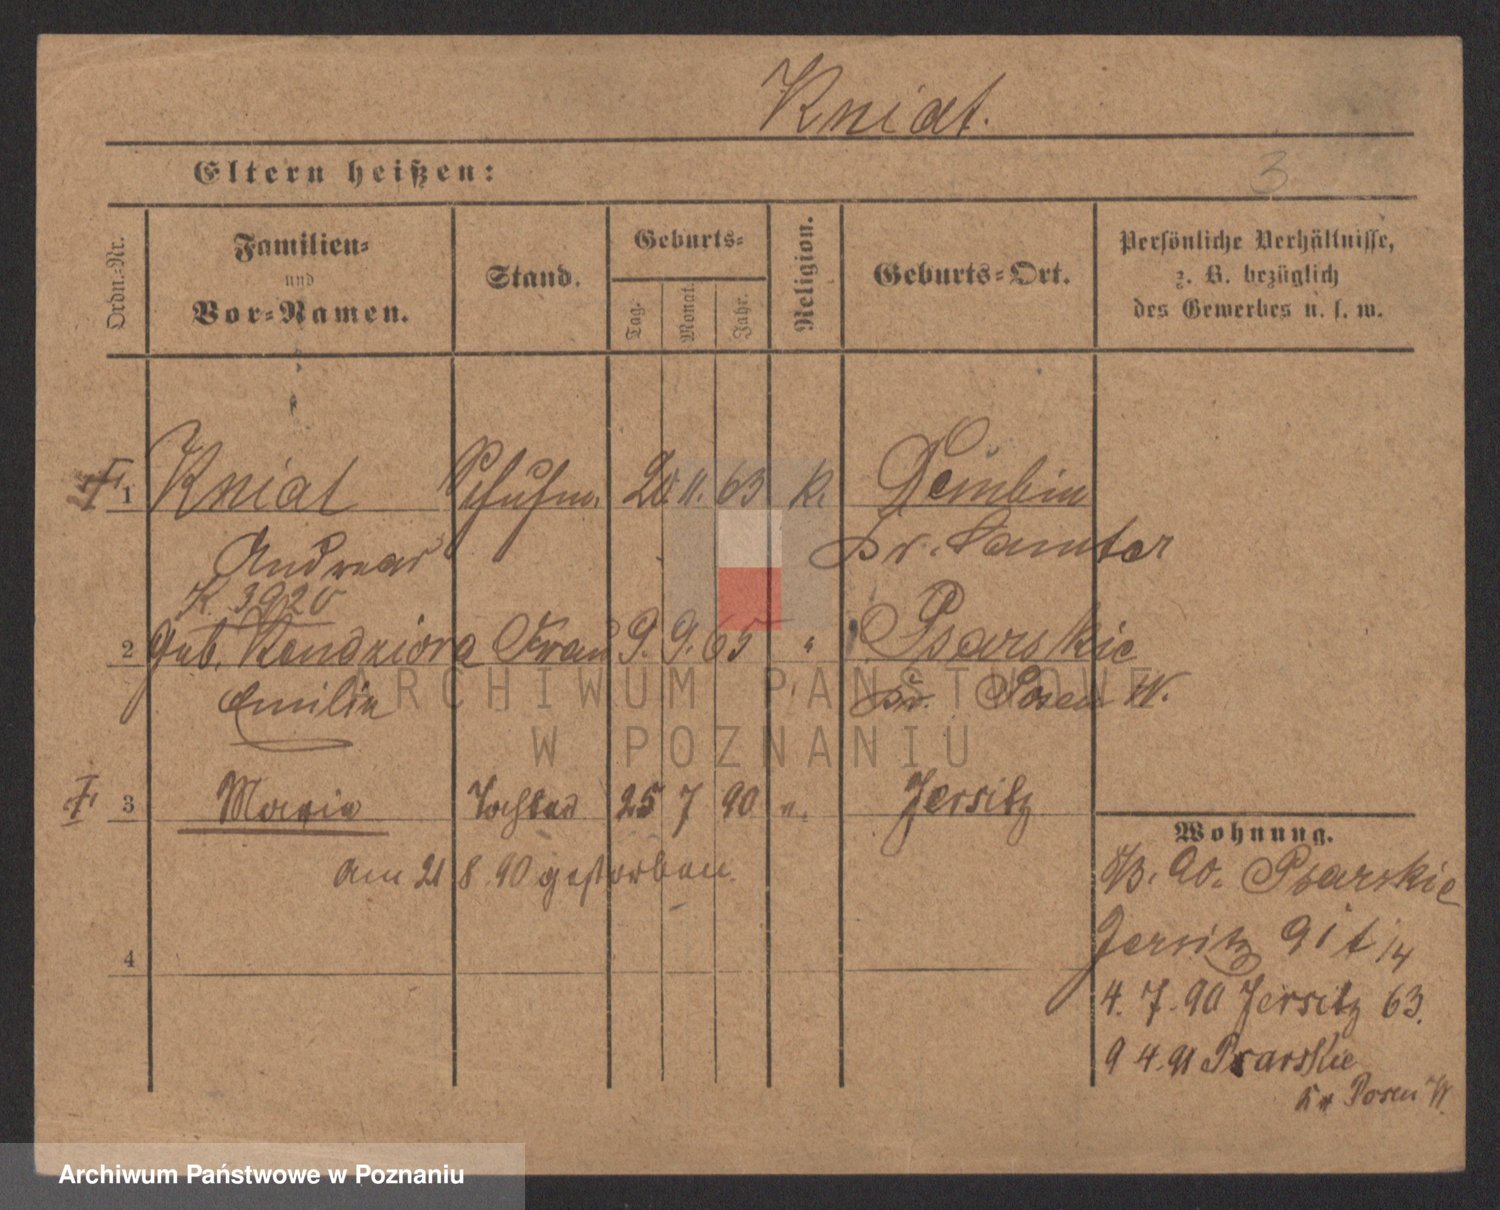 Kniat.
Eltern heißen:
3
Ordn.-Nr.
Familien-
und
Vor-Namen.
Stand.
Geburts-
Tag.
Monat.
Jahr.
Religion.
Geburts-Ort.
Persönliche Verhältnisse,
z. B. bezüglich
des Gewerbes u. s. w.
1 Kniat Schuhm. 20 11. 63 k. Dembin
Andreas Kr. Samter
K. 3920
2 geb. Kendziora Frau 9. 9. 65 " Psarskie
Emilie Kr. Posen W.
3 Maria Tochter 25 7 90 ". Jersitz
am 21 8. 90 gestorben.
4
Wohnung.
8/3. 90. Psarskie
Jersitz 91
4. 7. 90 Jersitz 63.
9 4. 91 Psarskie
Kr Posen W.
ARCHIWUM PAŃSTWOWE
W POZNANIU
Archiwum Państwowe w Poznaniu